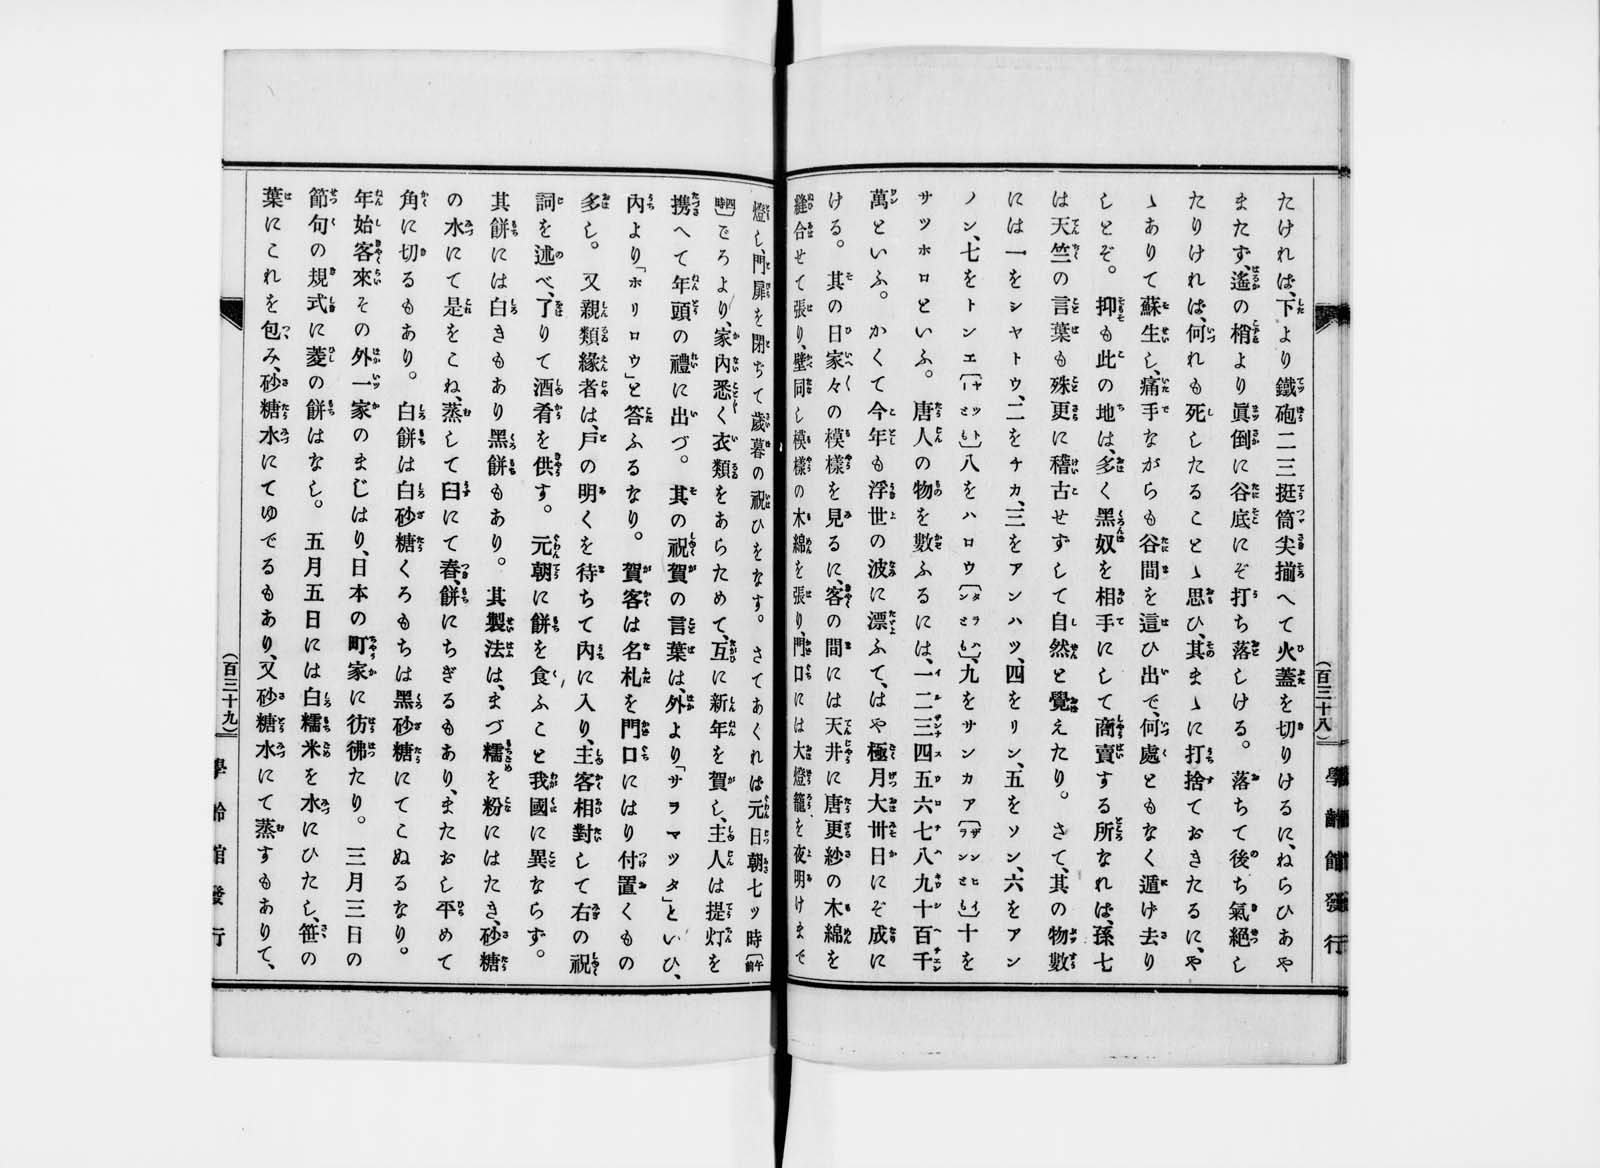 (百三十八)
學齡館發行
たければ、下より鐵砲二三挺筒尖揃へて火蓋を切りけるに、ねらひあや
またず、遙の梢より眞倒に谷底にぞ打ち落しける。落ちて後ち氣絕し
たりければ、何れも死したることゝ思ひ、其まゝに打捨ておきたるに、や
ゝありて蘇生し、痛手ながらも谷間を這ひ出で、何處ともなく遁け去り
しとぞ。抑も此の地は、多く黑奴を相手にして商賣する所なれば、孫七
は天竺の言葉も殊更に稽古せずして自然と覺えたり。さて、其の物數
には一をシヤトウ、二をチカ、三をアンハツ、四をリン、五をソン、六をアン
ノン、七をトンエ八をハロウ九をサンカア十を
サツホロといふ。唐人の物を數ふるには、一二三四五六七八九十百千
萬といふ。かくて今年も浮世の波に漂ふて、はや極月大卅日にぞ成に
ける。其の日家々の模樣を見るに、客の間には天井に唐更紗の木綿を
縫合せて張り、壁同し模樣の木綿を張り、門口には大燈籠を夜明けまで
燈し、門扉を閉ぢて歲暮の祝ひをなす。さてあくれは元日朝七ツ時〔午前
四時〕ごろより、家內悉く衣類をあらためて、互に新年を賀し、主人は提灯を
携へて年頭の禮に出づ。其の祝賀の言葉は、外より「サヲマツタ」といひ、
內より「ホリロウ」と答ふるなり。賀客は名札を門口にはり付置くもの
多し。又親類緣者は、戸の明くを待ちて內に入り、主客相對して右の祝
詞を述べ、了りて酒肴を供す。元朝に餅を食ふこと我國に異ならず。
其餅には白きもあり黑餅もあり。其製法は、まづ糯を粉にはたき、砂糖
の水にて是をこね、蒸して臼にて舂、餅にちぎるもあり、またおし平めて
角に切るもあり。白餅は白砂糖くろもちは黑砂糖にてこぬるなり。
年始客來その外一家のまじはり、日本の町家に彷彿たり。三月三日の
節句の規式に菱の餅はなし。五月五日には白糯米を水にひたし、笹の
葉にこれを包み、砂糖水にてゆでるもあり、又砂糖水にて蒸すもありて、
(百三十九)
學齡館發行